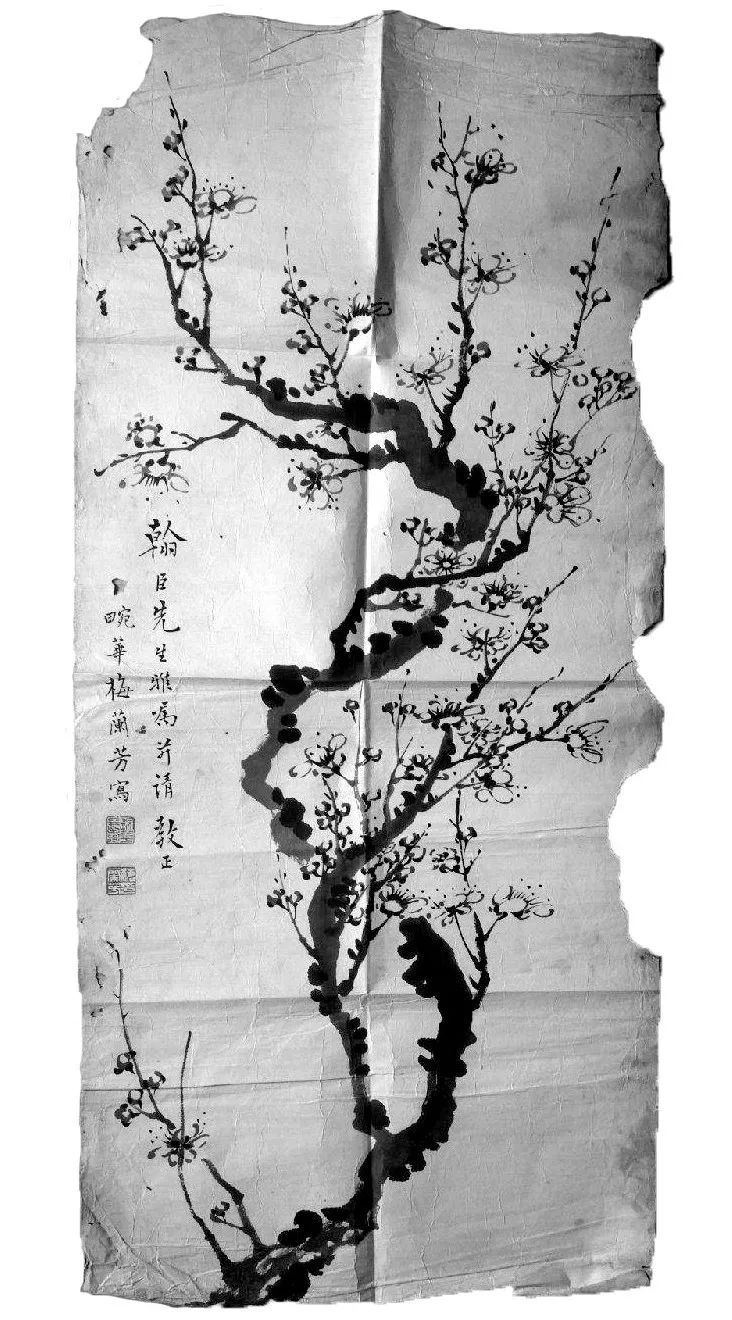 翰臣先生雅屬并請教正
畹華梅蘭芳寫